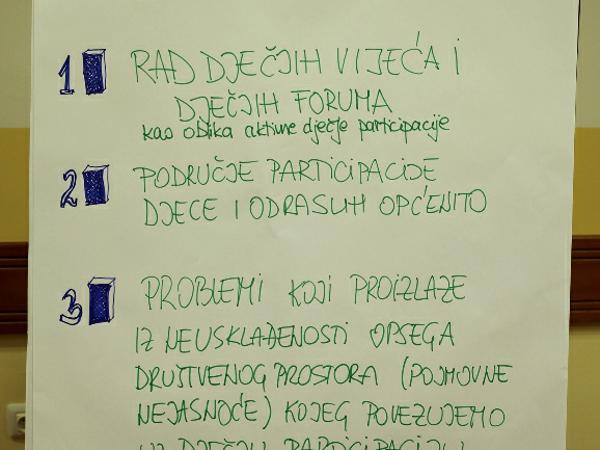 1 RAD DJEČJIH VIJEĆA I
DJEČJIH FORUMA
kao oblika aktivne dječje participacije
2 PODRUČJE PARTICIPACIJE
DJECE I ODRASLIH OPĆENITO
3 PROBLEMI KOJI PROIZLAZE
IZ NEUSKLAĐENOSTI OPSEGA
DRUŠTVENOG PROSTORA (POJMOVNE
NEJASNOĆE) KOJEG POVEZUJEMO
UZ DJEČJU PARTICIPACIJU